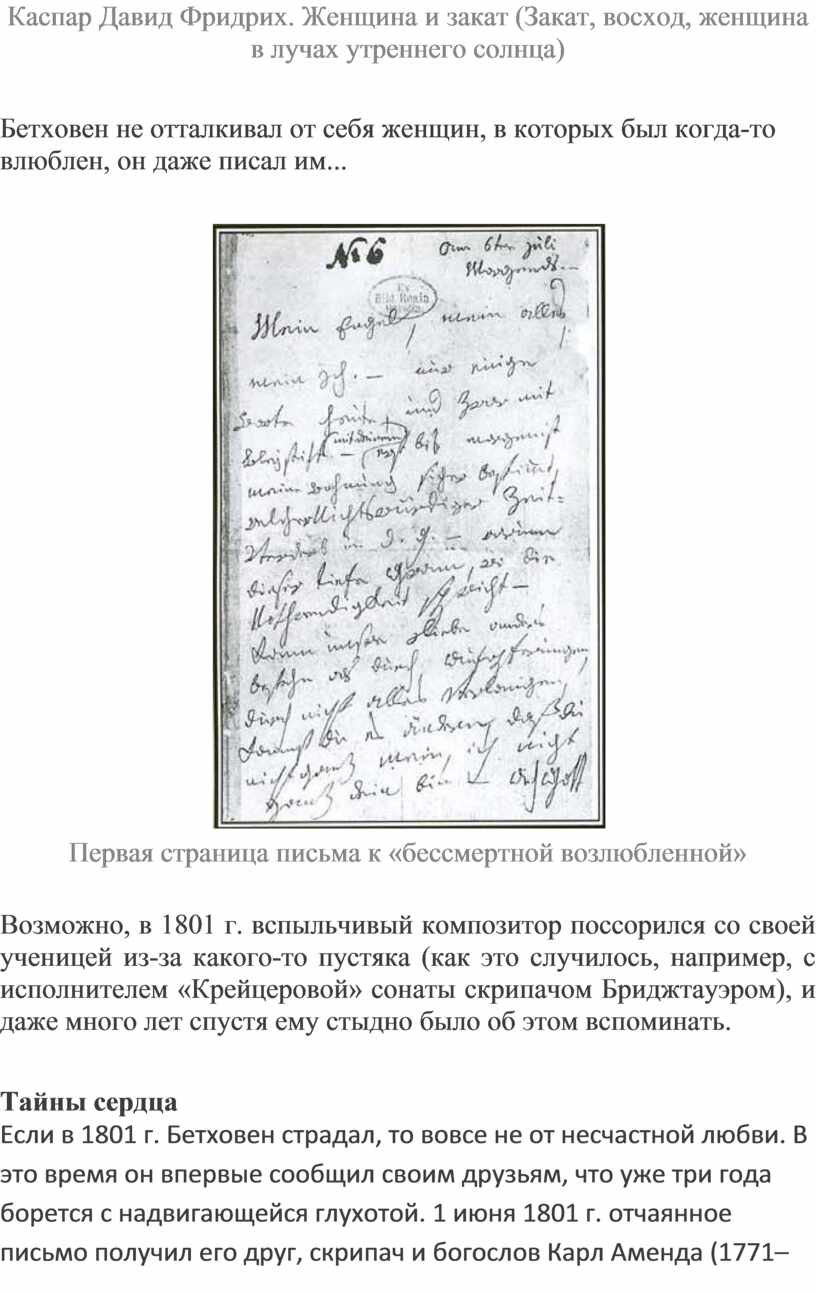 Каспар Давид Фридрих. Женщина и закат (Закат, восход, женщина
в лучах утреннего солнца)
Бетховен не отталкивал от себя женщин, в которых был когда-то
влюблен, он даже писал им...
№ 6
am 6ten juli
Morgends. –
Mein Engel, mein alles
mein Ich. – nur einige
Worte heute, und zwar mit
Bleystift – mit deinem
bis morgen ist
meine Wohnung sicher bestimmt,
welcher Nichtswürdiger Zeit-
Verderb in d. g. – warum
dieser tiefe Gram, wo die
Nothwendigkeit spricht –
Kann unsre Liebe anders
bestehn als durch Aufopferungen,
durch nicht alles verlangen,
kannst du es ändern, daß du
nicht ganz mein, ich nicht
ganz dein bin – ach Gott
Первая страница письма к «бессмертной возлюбленной»
Возможно, в 1801 г. вспыльчивый композитор поссорился со своей
ученицей из-за какого-то пустяка (как это случилось, например, с
исполнителем «Крейцеровой» сонаты скрипачом Бриджтауэром), и
даже много лет спустя ему стыдно было об этом вспоминать.
Тайны сердца
Если в 1801 г. Бетховен страдал, то вовсе не от несчастной любви. В
это время он впервые сообщил своим друзьям, что уже три года
борется с надвигающейся глухотой. 1 июня 1801 г. отчаянное
письмо получил его друг, скрипач и богослов Карл Аменда (1771–